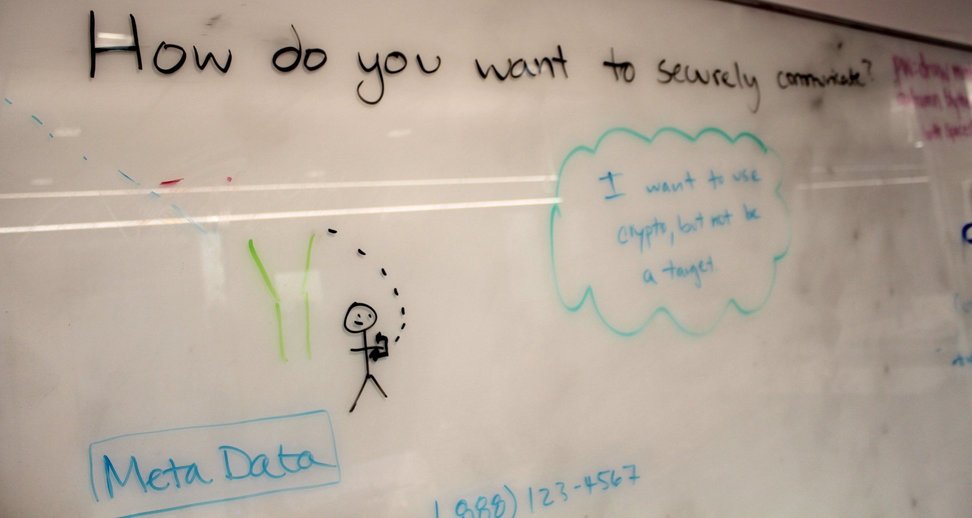 How do you want to securely communicate?
I want to use
crypto, but not be
a target
Meta Data
1(888) 123-4567